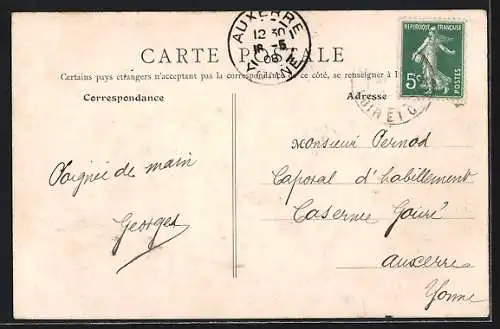 AUXERRE
12 30
16 -5
08
YONNE
CARTE POSTALE
Certains pays étrangers n'acceptent pas la correspondance de ce côté, se renseigner à l
REPUBLIQUE FRANÇAISE
5c
POSTES
Correspondance
Adresse
LOIR ET C
Poignée de main
Georges
Monsieur Pernod
Caporal d'habillement
Caserne Gouré
Auxerre
Yonne